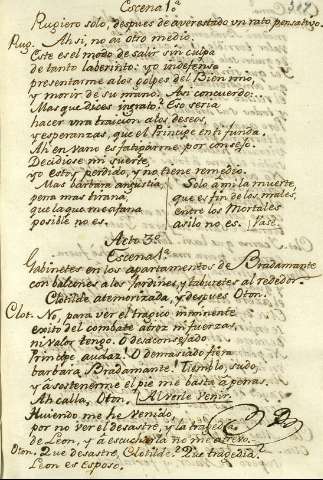 Escena 1ª
Rugiero solo, despues de aver estado un rato pensativo.
Rug. Ah si, no ai otro medio.
Este es el modo de salir sin culpa
de tanto laberinto: yo indefenso
presentarme a los golpes del Bien mio,
y morir de su mano. Asi concuerdo...
Mas que dices ingrato? Eso seria
hacer una traicion a los deseos,
y esperanzas, que el Principe en ti funda.
Ah en vano es fatigarme por consejo.
Decidiose mi suerte,
yo estoy perdido, y no tiene remedio.
Mas barbara angustia,
pena mas tirana,
que la que me afana
posible no es.
Solo â mi la muerte
que es fin de los males,
entre los Mortales
asilo no es. Vase.
Acto 3º
Escena 1ª
Gabinetes en los apartamentos de Bradamante
con balcones a los Jardines, y taburetes al rededor.
Clotilde atemorizada, y despues Oton.
Clot. No, para ver el tragico iminente
exito del combate atroz mi fuerzas,
ni valor tengo. O desaconsejado
Principe audaz! O demasiado fiera
barbara Bradamante! Tiemblo, sudo,
y â sostenerme el pie me basta â penas.
Ah calla, Oton. Al verle venir
Huiendo me he venido,
por no ver el desastre, y la tragedia
de Leon, y â escucharla no me atrevo.
Oton. Que desastre, Clotilde? Que tragedia?
Leon es Esposo.